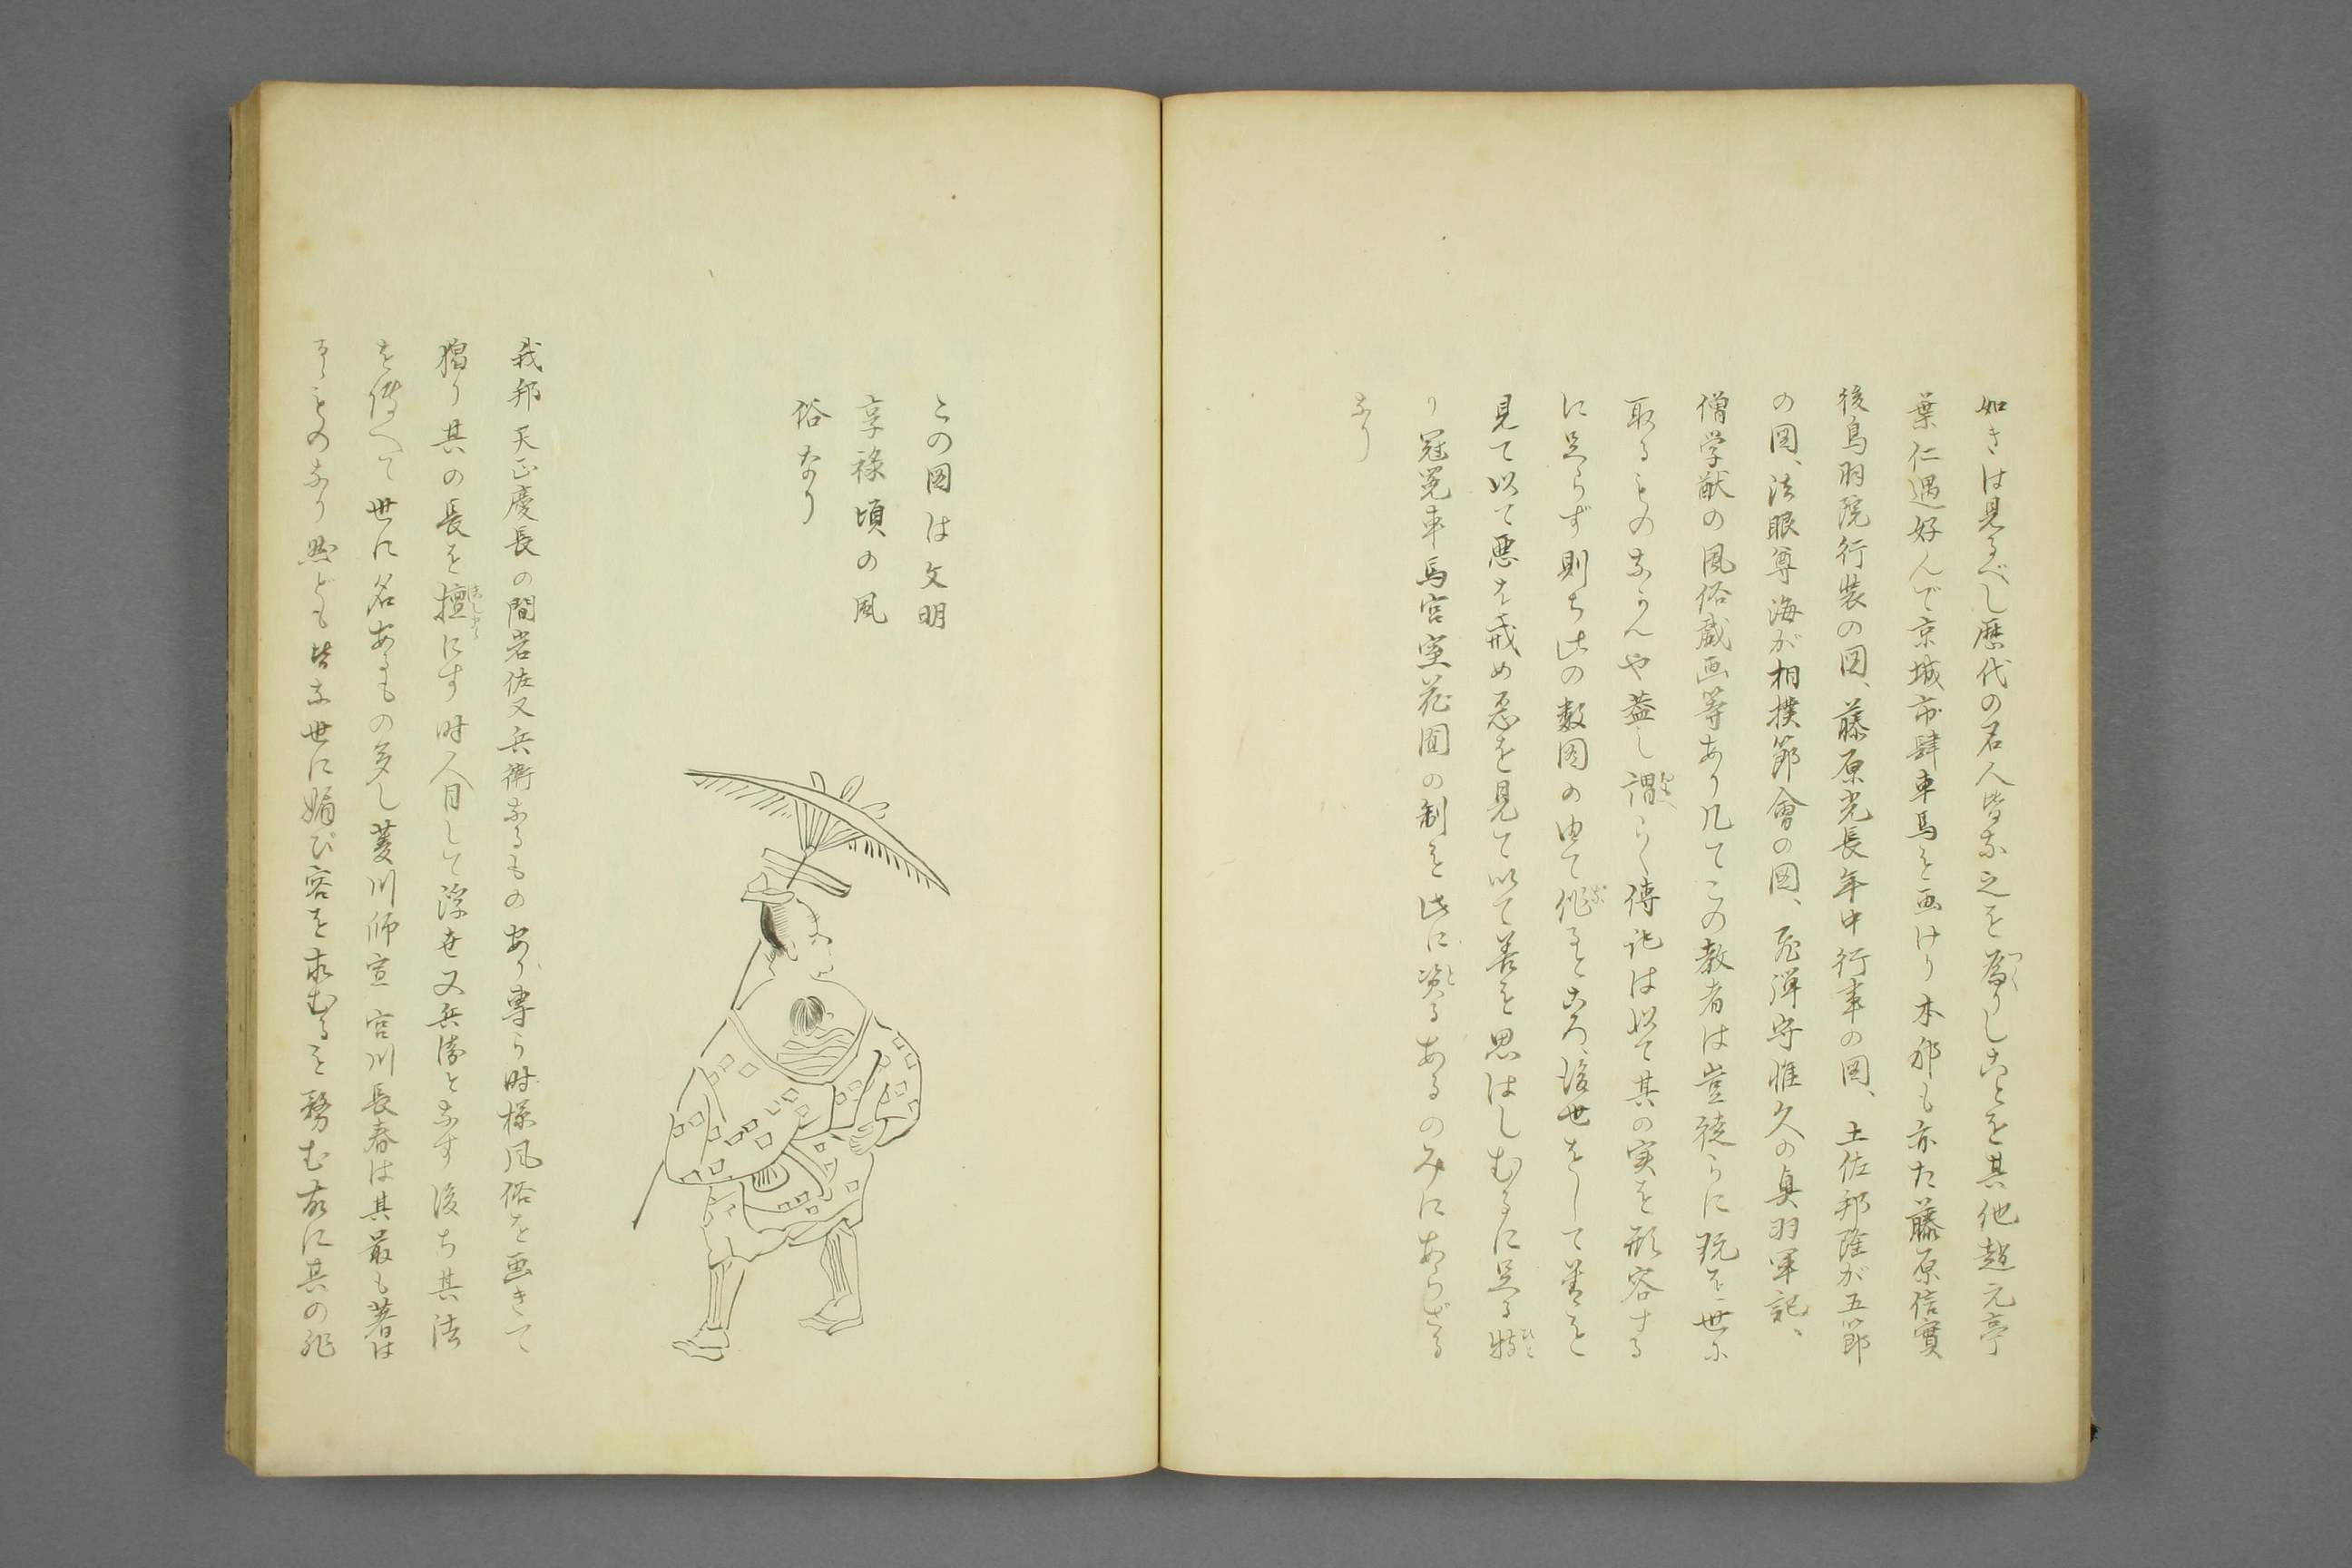 如きは見るべし歴代の名人皆な之を為りしことを其他趙元亭
葉仁遇好んで京城市肆車馬を画けり本邦も亦た藤原信實
後鳥羽院行装の図、藤原光長年中行事の図、土佐邦隆が五節
の図、法眼尊海が相撲節會の図、飛弾守惟久の奥羽軍記、
僧学猷の風俗戯画等あり凡てこの数者は豈徒らに玩を世に
取るものならんや蓋し謂らく傳記は以て其の実を形容する
に足らず則ち此の数図の由て作るところ後世をして善を
見て以て悪を戒め悪を見て以て善を思はしむるに足る特
り冠冕車馬宮室花園の制を此に資るあるのみにあらざる
なり
この図は文明
享禄頃の風
俗なり
我邦天正慶長の間岩佐又兵衛なるものあり専ら時様風俗を画きて
獨り其の長を擅にす時人目して浮世又兵衛となす後ち其法
を傳へて世に名あるもの多し菱川師宣宮川長春は其最も著は
るゝものなり然ども皆な世に媚び容を求むるを務む故に其の